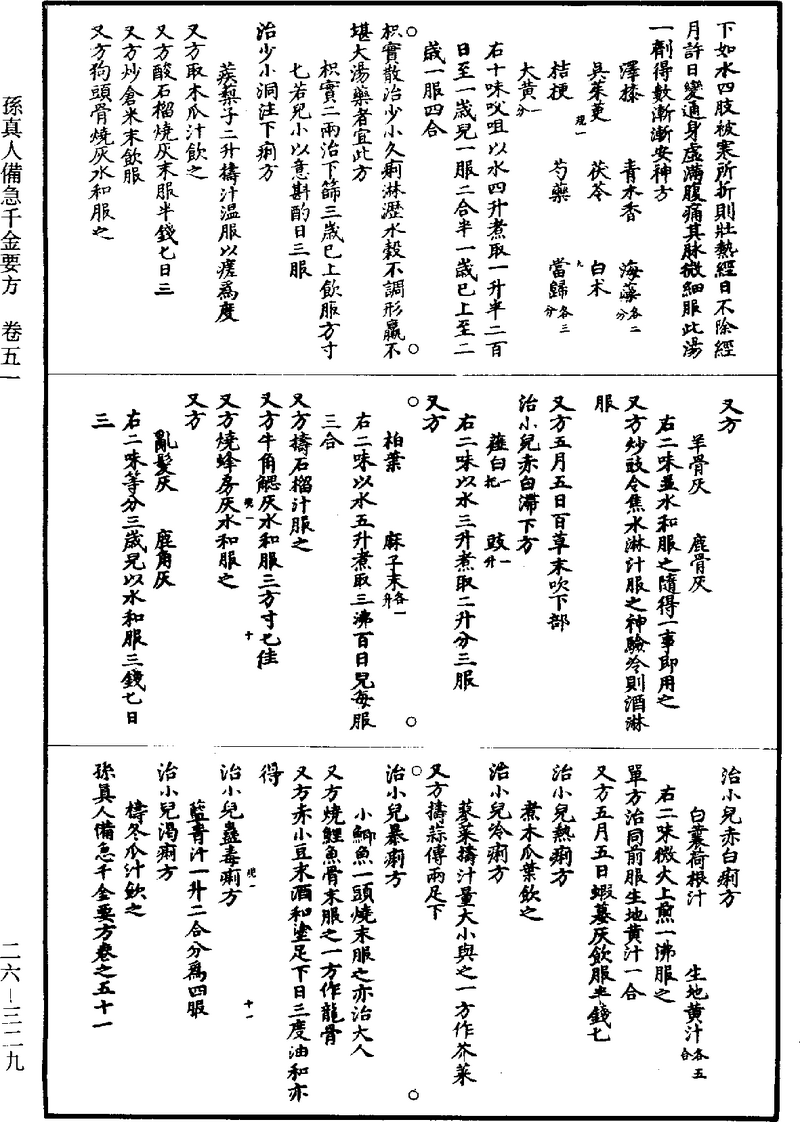 下如水四肢被寒所折則壯熱經日不除經
月許日變通身虛滿腹痛其脉微細服此湯
一劑得數漸漸安神方
澤㯶 青木香 海藻各二分
吳茱萸 茯苓 白术
桔梗 芍藥 當歸各三分
大黃一分
右十味㕮咀以水四升煮取一升半二百
日至一歲兒一服二合半一歲已上至二
歲一服四合
枳實散治少小久痢淋瀝水穀不調形羸不
堪大湯藥者宜此方
枳實二兩治下篩三歲已上飲服方寸
匕若兒小以意斟酌日三服
治少小洞注下痢方
蒺梨子二升擣汁溫服以瘥爲度
又方取木瓜汁飲之
又方酸石榴燒灰末服半錢匕日三
又方炒倉米末飲服
又方狗頭骨燒灰水和服之
又方
羊骨灰 鹿骨灰
右二味並水和服之隨得一事即用之
又方炒豉令焦水淋汁服之神驗冷則酒淋
服
又方五月五日百草末吹下部
治小兒赤白滯下方
薤白一把 豉一升
右二味以水三升煮取二升分三服
又方
柏葉 麻子末各一升
右二味以水五升煮取三沸百日兒每服
三合
又方擣石榴汁服之
又方牛角䚡灰水和服三方寸匕佳
又方燒蜂房灰水和服之
又方
亂髮灰 鹿角灰
右二味等分三歲兒以水和服三錢匕日
三
治小兒赤白痢方
白蘘荷根汁 生地黃汁各五合
右二味微火上煎一沸服之
單方治同前服生地黃汁一合
又方五月五日蝦蟇灰飲服半錢匕
治小兒熱痢方
煮木瓜葉飲之
治小兒冷痢方
蓼菜擣汁量大小與之一方作芥菜
又方擣蒜傅兩足下
治小兒暴痢方
小鯽魚一頭燒末服之亦治大人
又方燒鯉魚骨末服之一方作龍骨
又方赤小豆末酒和塗足下日三度油和亦
得
治小兒蠱毒痢方
藍青汁一升二合分爲四服
治小兒渴痢方
擣冬瓜汁飲之
孫真人備急千金要方卷之五十一
孫真人備急千金要方 卷五一
二六—三二九